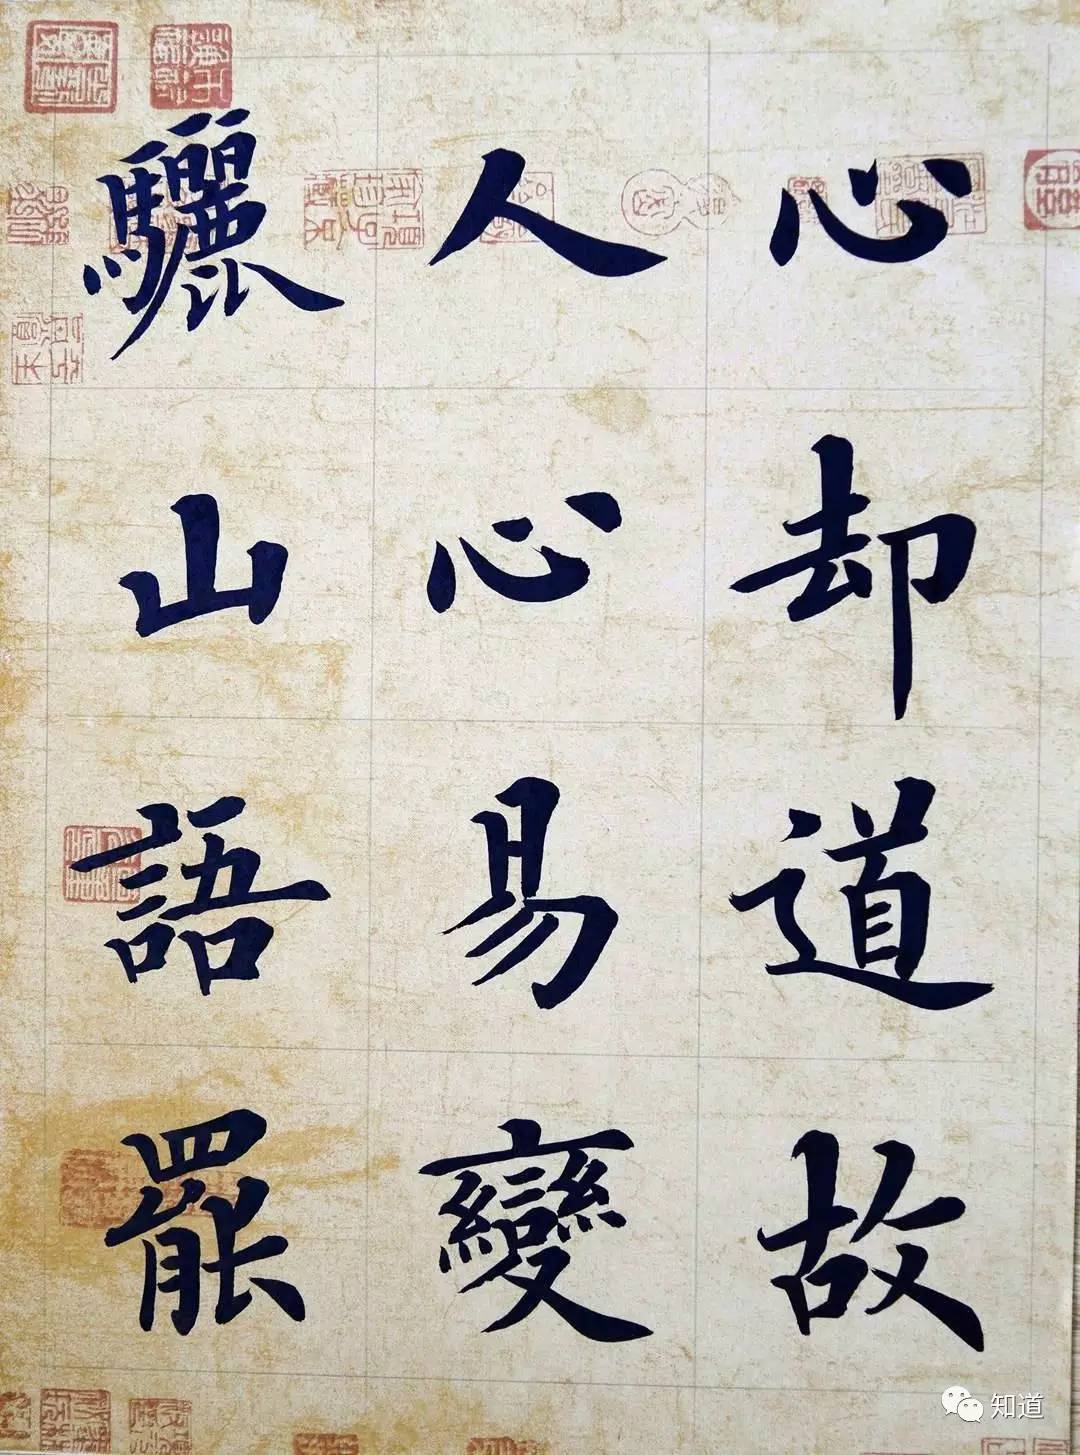 心却道故
人心易變
驪山語罷
知道